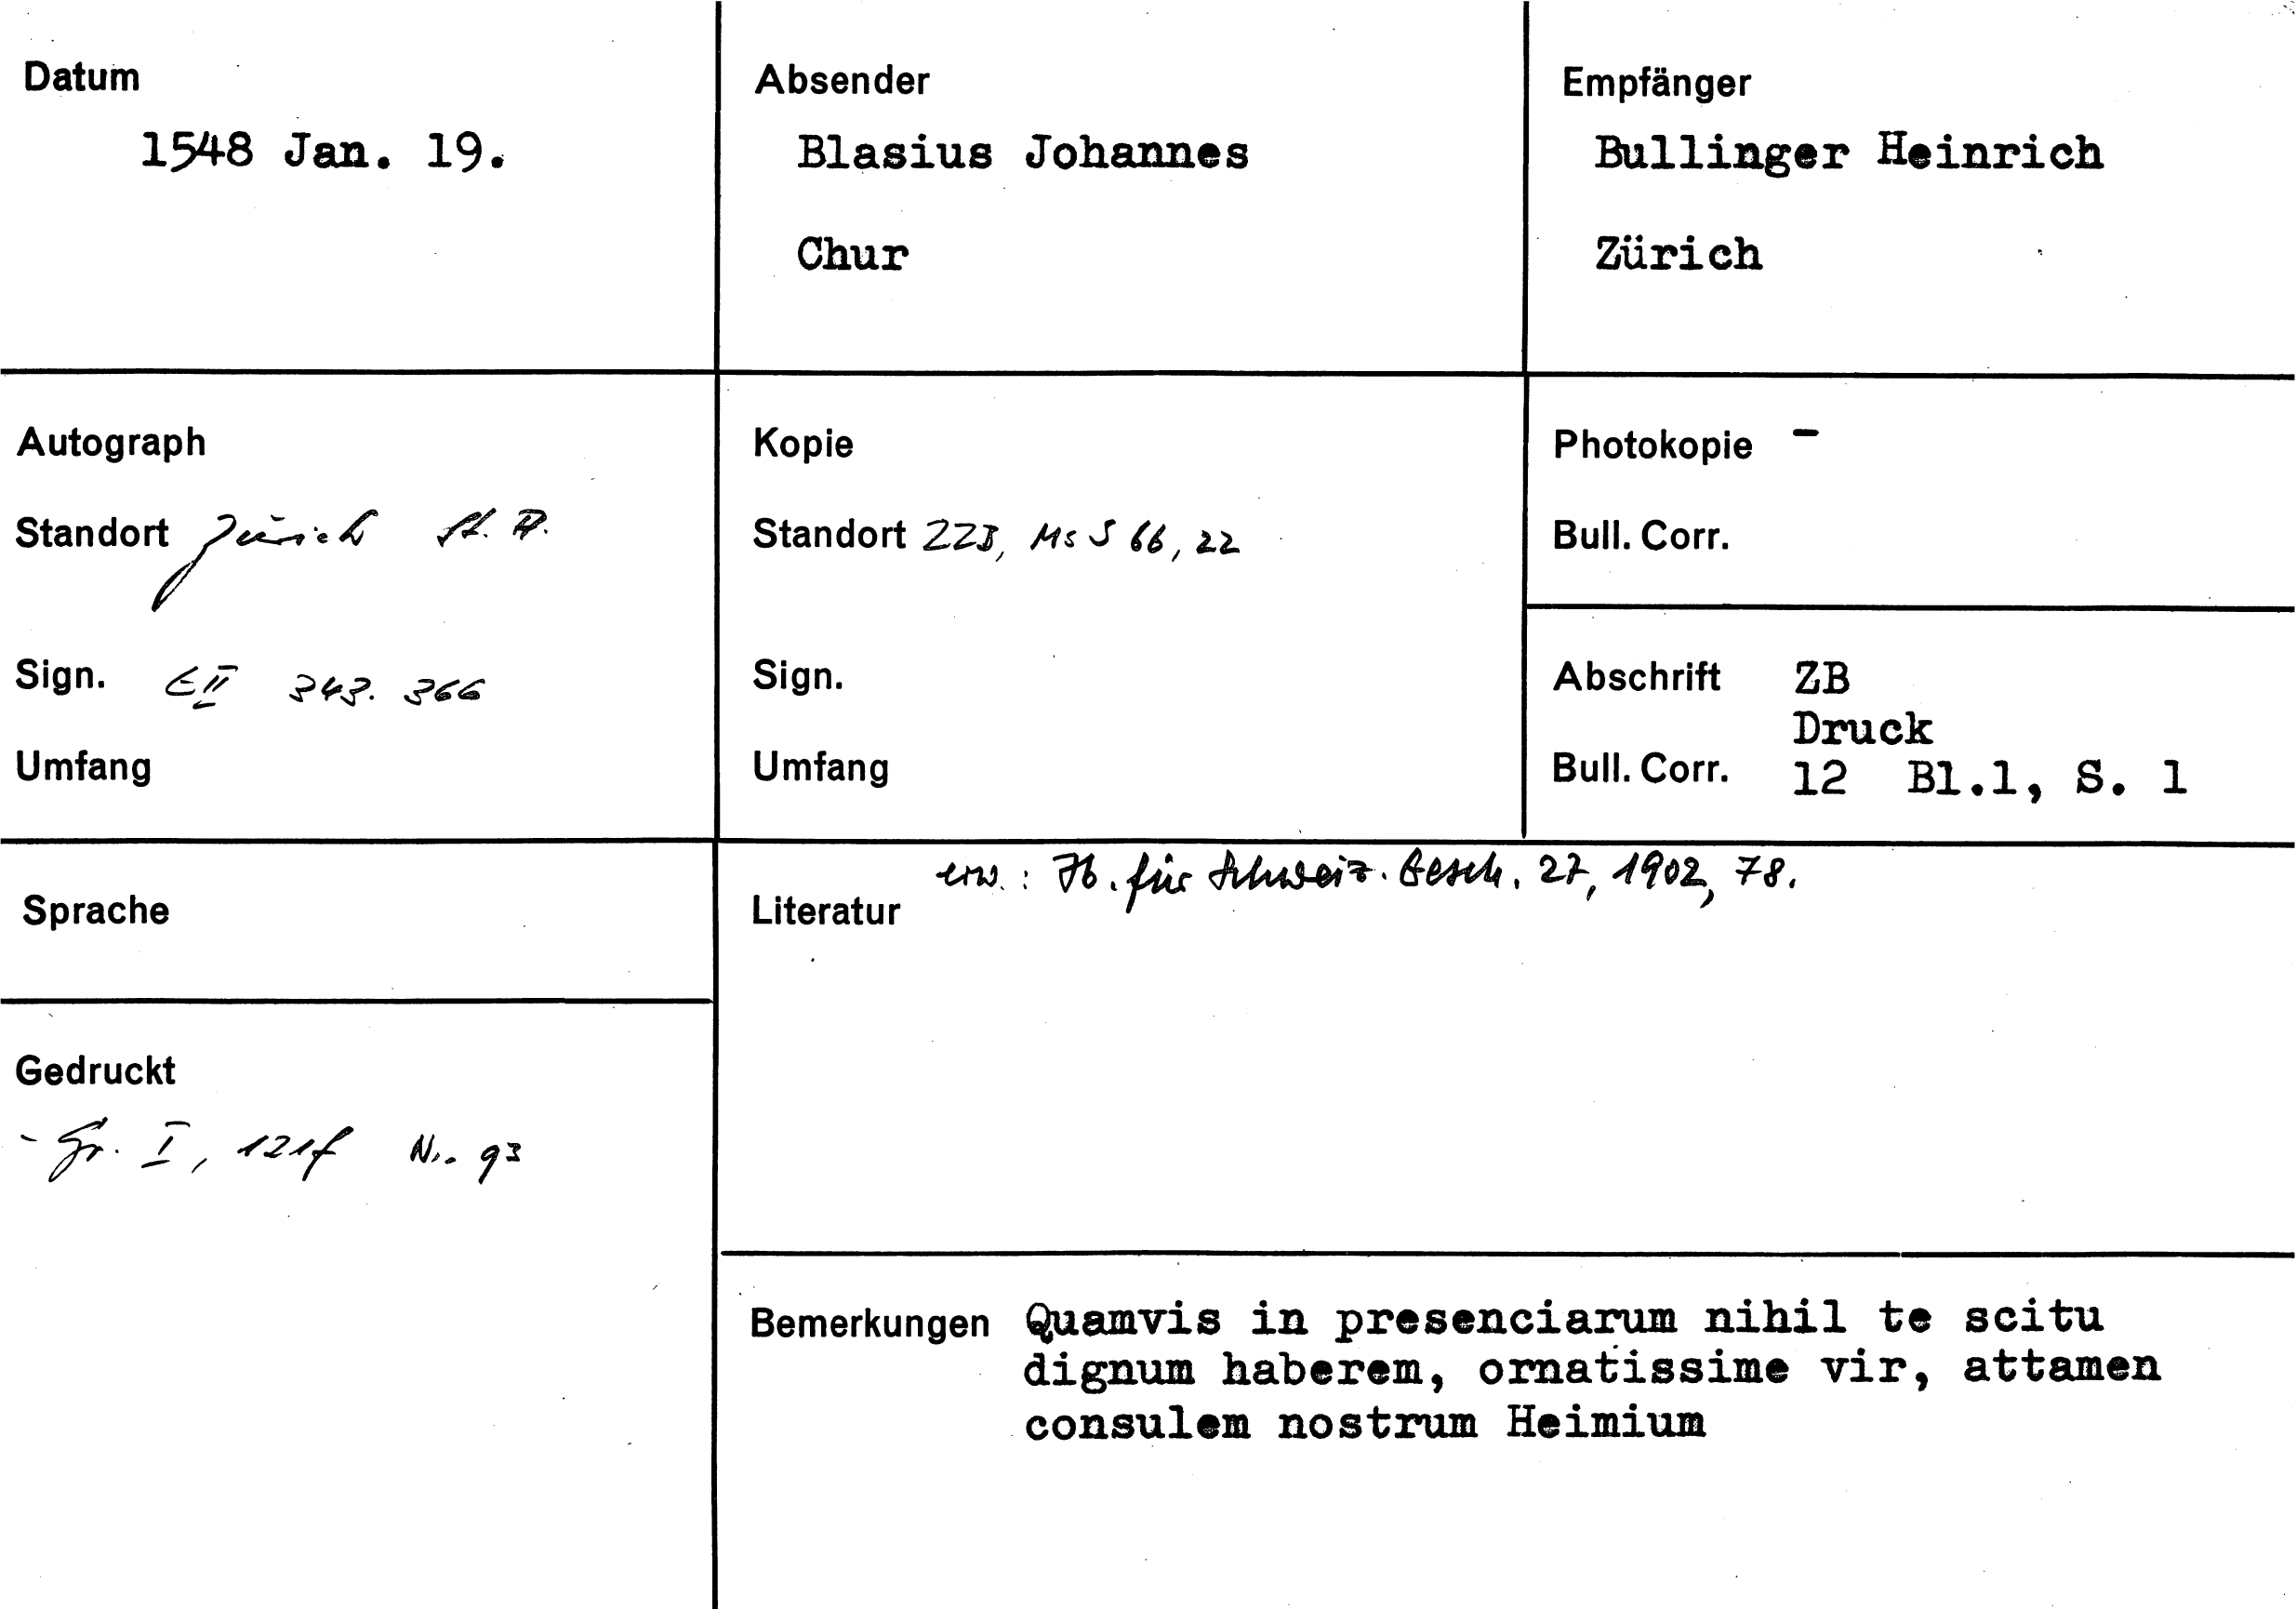 Datum
1548 Jan. 19.
Absender
Blasius Johannes
Chur
Empfänger
Bullinger Heinrich
Zürich
Autograph
Standort Zürich St. A.
Sign. E II 343. 366
Umfang
Kopie
Standort ZZB, Ms S 66, 22
Sign.
Umfang
Photokopie -
Bull. Corr.
Abschrift ZB
Druck
Bull. Corr. 12 Bl.1, S. 1
Sprache
Gedruckt
- Gr. I, 121f Nr. 93
erw.: Jb. für Schweiz. Gesch. 27, 1902, 78.
Literatur
Bemerkungen Quamvis in presenciarum nihil te scitu
dignum haberem, ornatissime vir, attamen
consulem nostrum Heimium